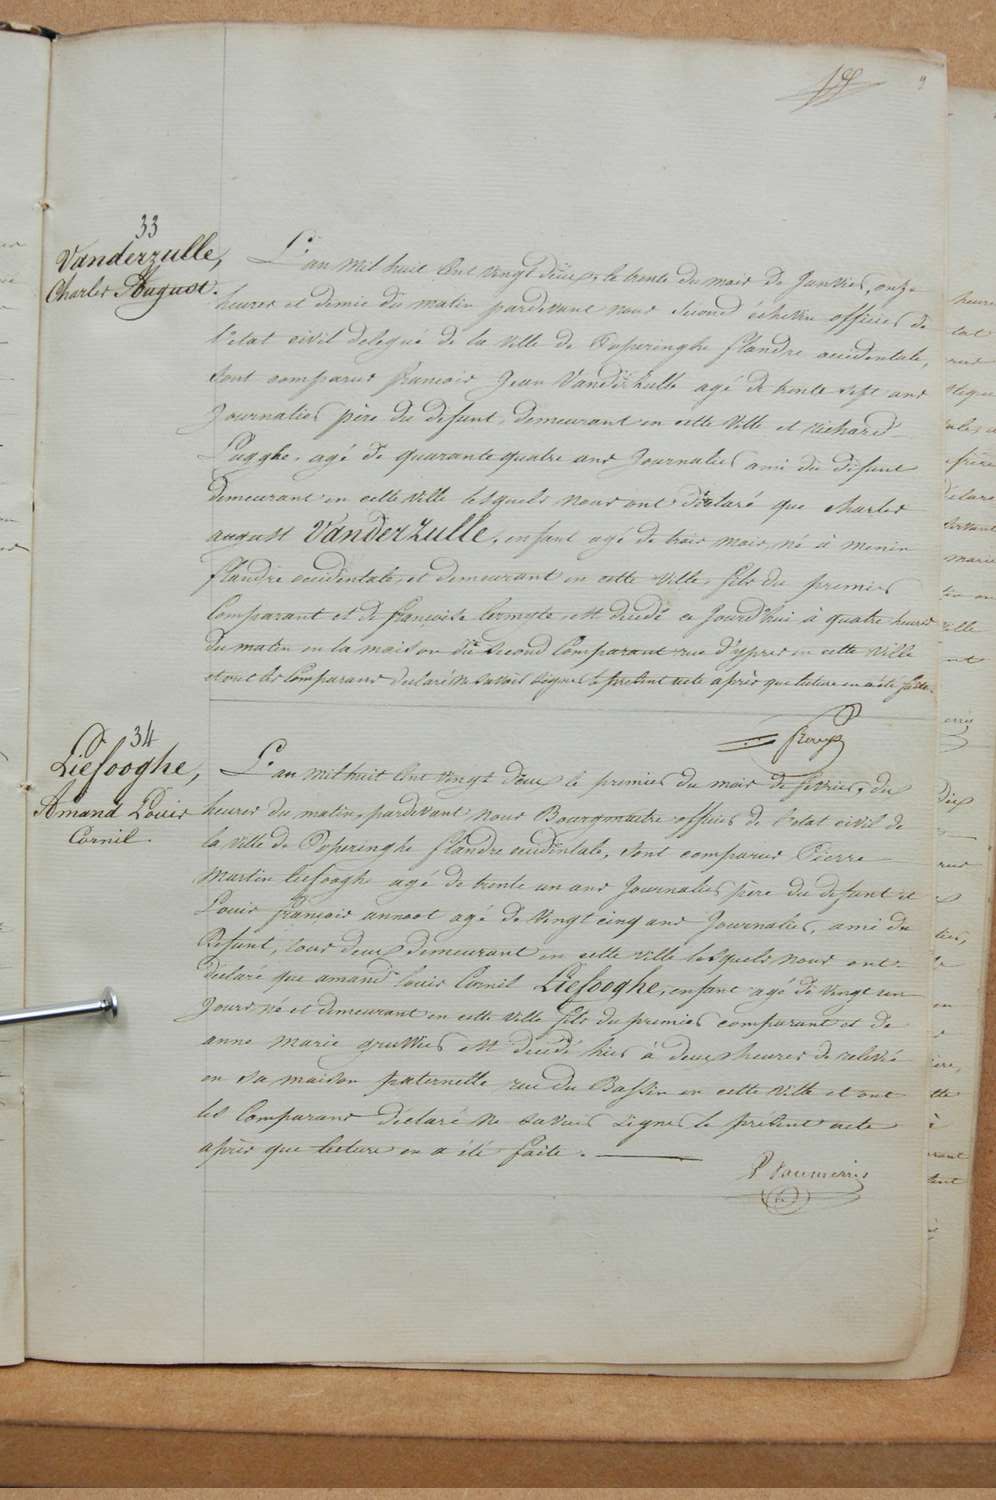 9
33
Vanderzulle,
Charles August.
L'an mil huit cent vingt deux, le trente du mois de Janvier, onze
heures et demie du matin pardevant nous second échevin officier de
l'etat civil delegué de la ville de Poperinghe flandre occidentale,
sont comparus francois Jean Vanderzulle agé de trente sept ans
Journalier père du défunt, demeurant en cette ville et richard
agé de quarante quatre ans Journalier ami du défunt
demeurant en cette ville lesquels nous ont déclaré que charles
august Vanderzulle, enfant agé de trois mois, né à menin
flandre occidentale, et demeurant en cette ville, fils du premier
Comparant et de françoise est decedé ce Jourd'hui à quatre heures
du matin en la maison du second Comparant rue d'ypres en cette ville
et ont les Comparans declaré ne savoir signer le présent acte après que lecture en a été faite.
34
Liefooghe,
Amand Louis
Cornil.
L'an mil huit cent vingt deux le premier du mois de février, dix
heures du matin, pardevant nous Bourgmaitre officier de l'etat civil de
la ville de Poperinghe flandre occidentale, sont comparus Pierre
Martin liefooghe agé de trente un ans Journalier père du défunt et
Louis francois annoot agé de vingt cinq ans Journalier, ami du
Défunt, tous deux demeurant en cette ville lesquels nous ont
déclaré que amand louis Cornil Liefooghe, enfant agé de vingt un
Jours né et demeurant en cette ville fils du premier comparant et de
anne marie gruwier est decedé hier à deux heures de relevée
en sa maison paternelle rue du Bassin en cette ville et ont
les Comparans déclaré ne savoir signer le présent acte
après que lecture en a été faite.